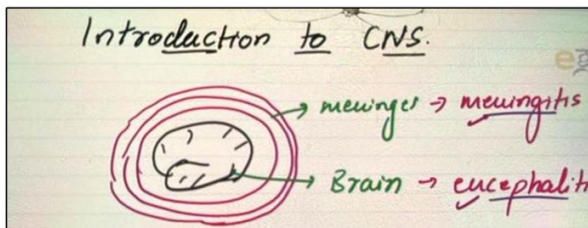 Introduction to CNS.
meninges → meningitis
Brain → encephaliti